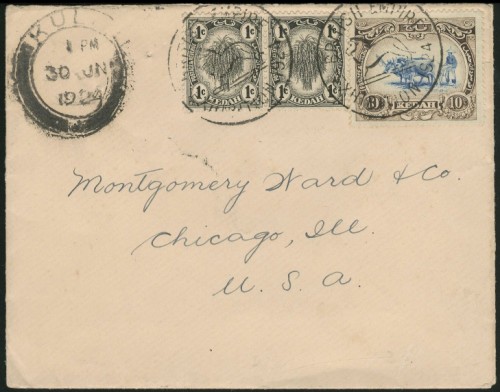 1 PM
30 JUN
1924
1c 1c
1c 1c
KEDAH 10
BRITISH EMPIRE
Montgomery Ward & Co.
Chicago, Ill.
U. S. A.